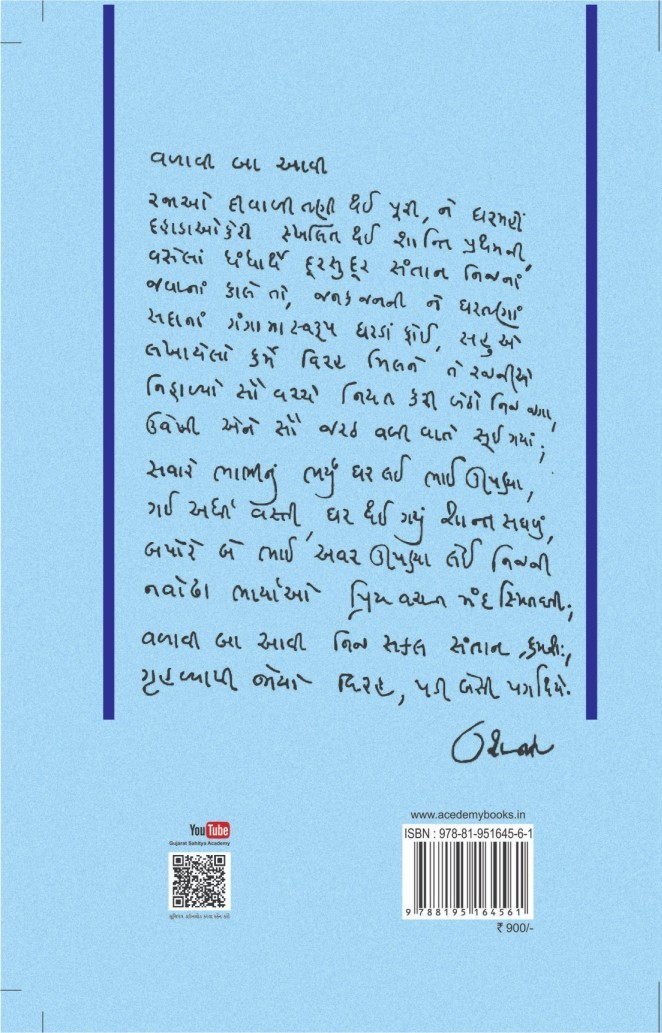 વળાવી બા આવી
રજાઓ દીવાળી તણી થઈ પૂરી, ને ઘરમહીં
દહાડાઓ કેરી સ્ખલિત થઈ શાન્તિ પ્રથમની,
વસેલાં ધંધાર્થે દૂરસુદૂર સંતાન નિજનાં
જવાનાં કાલે તો, જનકજનની ને ઘરતણાં
સદાનાં ગંગામાસ્વરૂપ ઘરડાં ફોઈ, સહુએ
લખાયેલો કર્મે વિરહ મિલને તે રજનીયે
નિહાળ્યો સૌ વચ્ચે નિયત કરી બેઠો નિજ જગા,
ઉવેખી એને સૌ જરઠ વળી વાતે સૂઈ ગયાં;
સવારે ભાભીનું ભર્યું ઘર લઈ ભાઈ ઊપડ્યા,
ગઈ અર્ધી વસ્તી, ઘર થઈ ગયું શાન્ત સઘળું,
બપોરે બે ભાઈ અવર ઊપડ્યા લેઈ નિજની
નવોઢા ભાર્યાઓ પ્રિયવચન મંદસ્મિતવતી;
વળાવી બા આવી નિજ સકલ સંતાન ક્રમશઃ,
ગૃહવ્યાપી જોયો વિરહ, પડી બેસી પગથિયે.
ઉશનસ્
YouTube
Gujarat Sahitya Academy
www.acedemybooks.in
ISBN : 978-81-951645-6-1
9 788195 164561
₹ 900/-